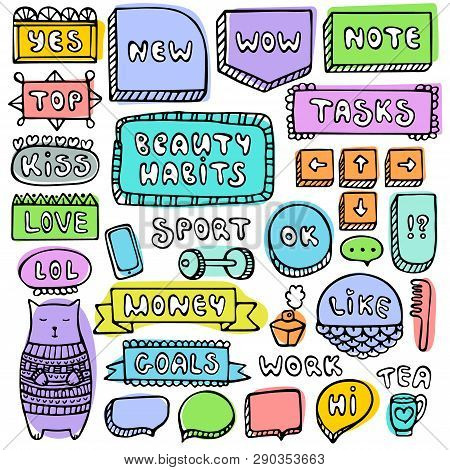 YES
NEW
WOW
NOTE
TOP
TASKS
BEAUTY
HABITS
KISS
LOVE
SPORT
OK
!?
LOL
MONEY
LIKE
GOALS
WORK
TEA
Hi
depositphotos
Image ID: 290353663